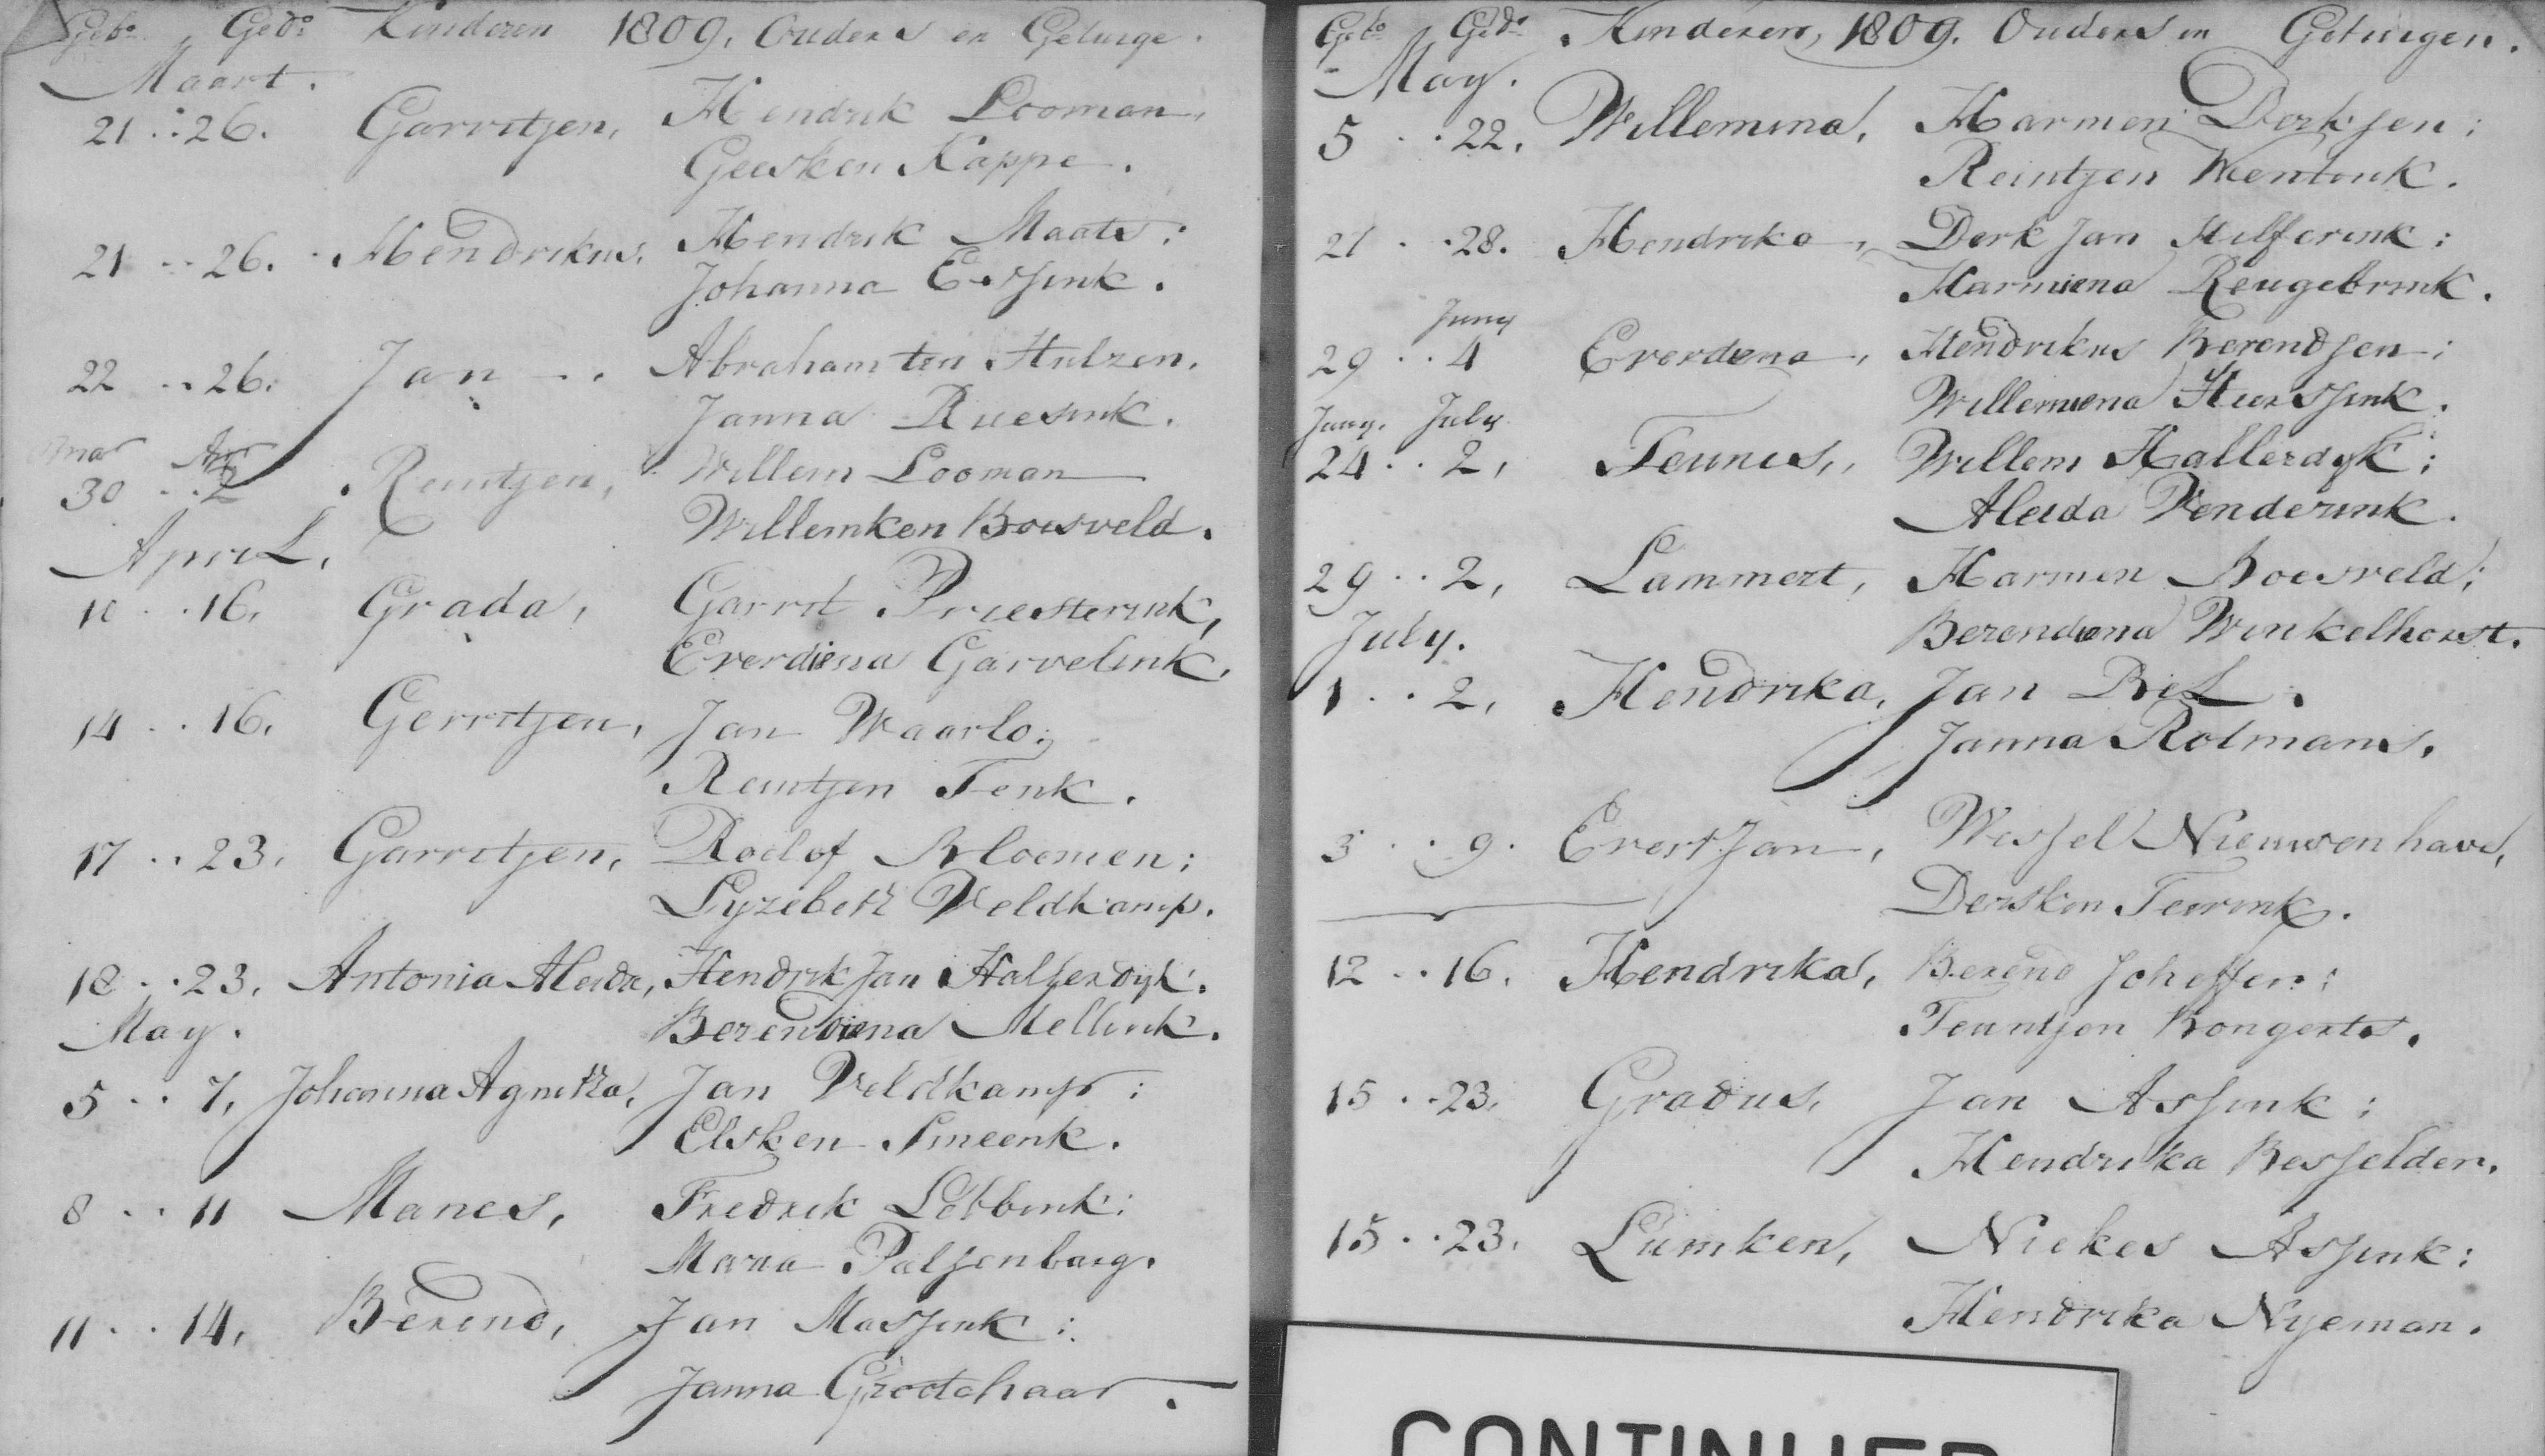 Gebo Gedo Kinderen 1809. Ouders en Getuige.
Maart.
21 .. 26. Garritjen, Hendrik Looman,
Geesken Kappe.
21 .. 26. Hendrikus, Hendrik Maats:
Johanna Essink.
22 .. 26. Jan Abraham ten Hulzen.
Janna Ruesink.
mar Apr
30 .. 2 Reintjen, Willem Looman
Willemken Boesveld.
April.
10 .. 16. Grada, Garrit Priesterink,
Everdiena Garvelink.
14 .. 16. Gerritjen, Jan Waarlo;
Reintjen Tenk.
17 .. 23. Garritjen, Roelof Bloemen;
Lyzebeth Veldkamp.
18 .. 23. Antonia Aleida, Hendrik Jan Halferdyk.
Berendiena Mellink.
May.
5 .. 7, Johanna Agnetha, Jan Veldkamp:
Elsken Smeenk.
8 .. 11 Manes, Fredrik Lebbink:
Maria Palsenbarg.
11 .. 14, Berend, Jan Massink:
Janna Grootehaar.
Gebo Gedo Kinderen, 1809. Ouders en Getuigen.
May.
5 .. 22. Willemina, Harmen Derksen;
Reintjen Wentink.
21 .. 28. Hendrika, Derk Jan Hilferink:
Harmiena Reugebrink.
Juny
29 .. 4 Everdena, Hendrikus Berendsen:
Willemiena Heersink.
Juny. July
24 .. 2, Teunes, Willem Hallerdyk:
Aleida Venderink.
29 .. 2, Lammert, Harmen Boesveld;
Berendiena Winkelhorst.
July.
1 .. 2, Hendrika, Jan Bil.
Janna Rotmans.
3 .. 9. Evert Jan, Wessel Nieuwenhave,
Dersken Teerink.
12 .. 16. Hendrika, Berend
Teuntjen Bongerts.
15 .. 23. Gradus, Jan Assink:
Hendrika Besselder.
15 .. 23. Lumken, Niekes Assink:
Hendrika Nyeman.
CONTINUED